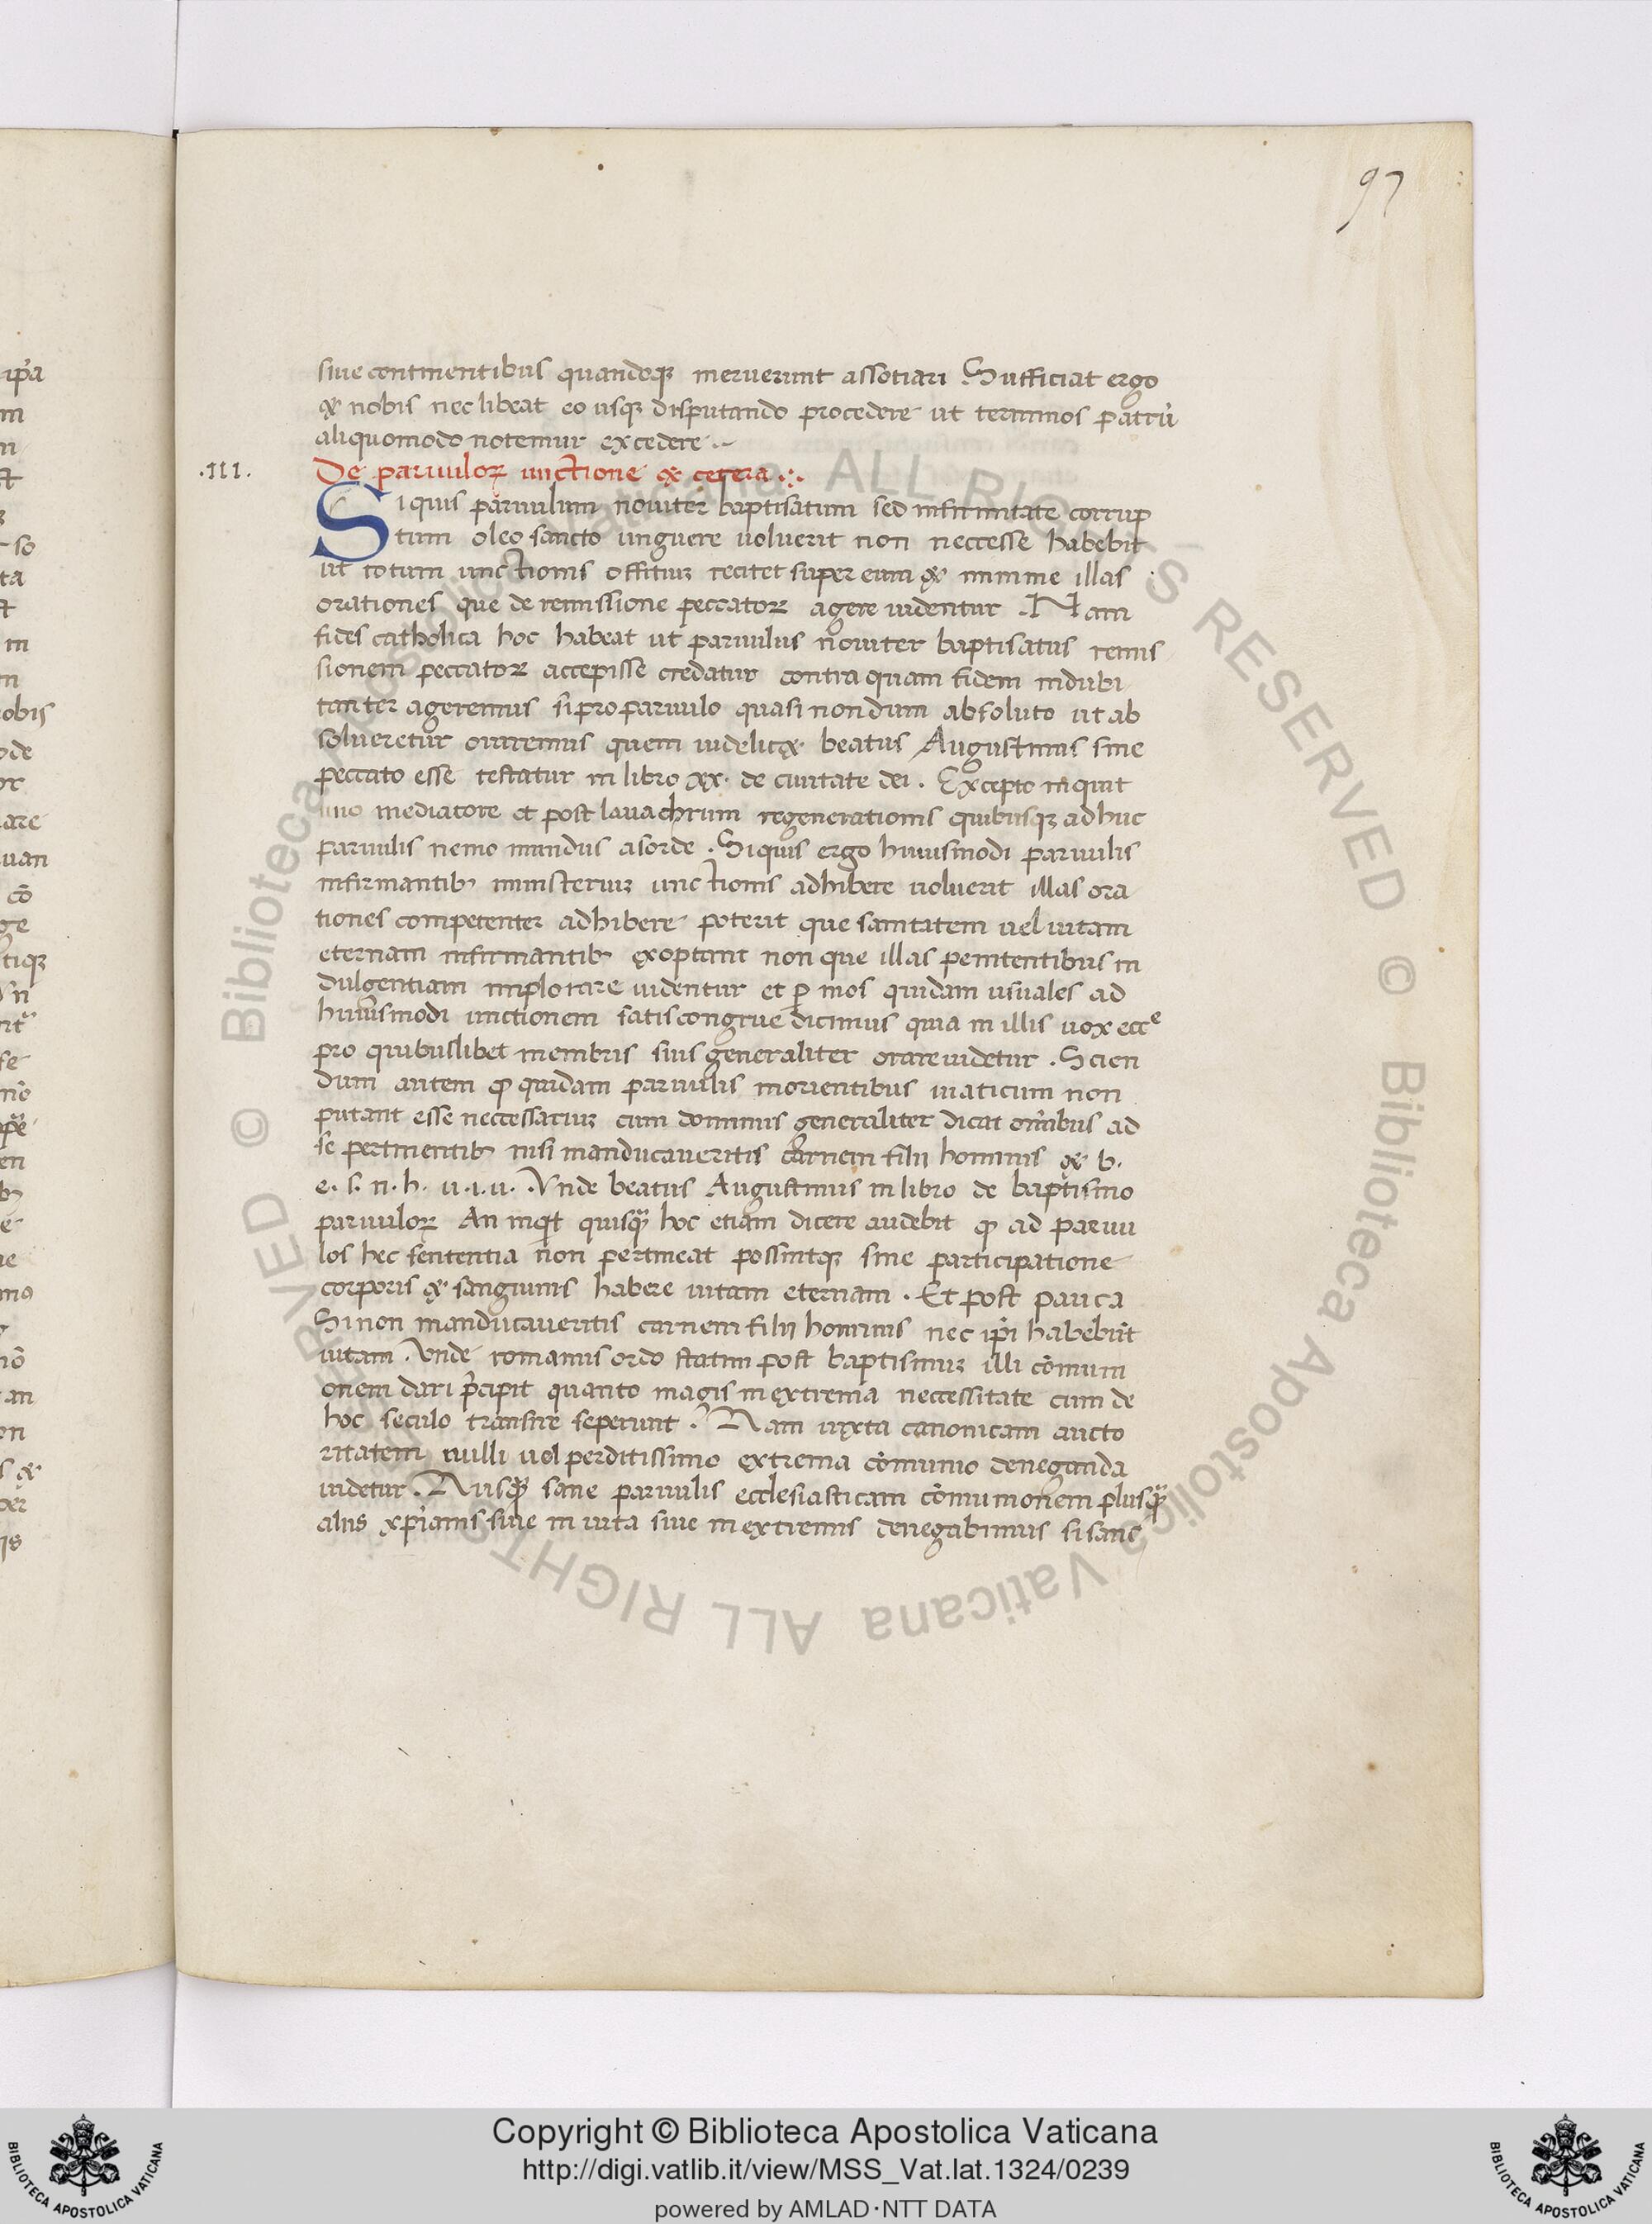 97
siue continentibus quandoqȝ meruerunt assotiari Sufficiat ergo
& nobis nec libeat eo usqȝ disputando procedere ut terminos patrū
aliquomodo notemur excedere
.III. De paruuloꝝ unctione & cetera
Si quis paruulum nouiter baptisatum sed infirmitate corrup
tum oleo sancto unguere uoluerit non neccesse habebit
ut totum unctionis offitiuȝ recitet super eum & minime illas
orationes que de remissione peccatoꝝ agere uidentur . Nam
fides catholica hoc habeat ut paruulus nouiter baptisatus remis
sionem peccatoꝝ accepisse credatur contra quam fidem indubi
tanter ageremus si pro paruulo quasi nondum absoluto ut ab
solueretur oraremus quem uidelic& beatus Augustinus sine
peccato esse testatur in libro xx. de ciuitate dei . Excepto inquit
uno mediatore et post lauachrum regenerationis quibusqȝ adhuc
paruulis nemo mundus a sorde . Si quis ergo huiusmodi paruulis
infirmantibꝰ ministeriuȝ unctionis adhibere uoluerit illas ora
tiones competenter adhibere poterit que sanitatem uel uitam
eternam infirmantibꝰ exoptant non que illas penitentibus in
dulgentiam implorare uidentur et ꝑ inos quidam usuales ad
huiusmodi unctionem satis congrue dicimus quia in illis uox eccᵉ
pro quibuslibet membris suis generaliter orare uidetur . Scien
dum autem ꝙ quidam paruulis morientibus uiaticum non
putant esse neccessariuȝ cum dominus generaliter dicat omībus ad
se pertinentibꝰ nisi manducaueritis carnem filii hominis & b.
e. s. n. h. u. i. u. Vnde beatus Augustinus in libro de baptismo
paruuloꝝ An inqͥt quisqᷓ hoc etiam dicere audebit ꝙ ad paruu
los hec sententia non pertineat possintqȝ sine participatione
corporis & sanguinis habere uitam eternam . Et post pauca
Si non manducaueritis carnem filii hominis nec ip̄i habebūt
uitam . Vnde romanus ordo statim post baptismuȝ illi cōmuni
onem dari p̄cipit quanto magis in extrema neccessitate cum de
hoc seculo transire ceperunt . Nam iuxta canonicam aucto
ritatem nulli uel perditissimo extrema cōmunio deneganda
uidetur . Nusqᷓ sane paruulis ecclesiasticam cōmunionem plusqᷓ
aliis xp̄ianis siue in uita siue in extremis denegabimus si sane
Copyright © Biblioteca Apostolica Vaticana
http://digi.vatlib.it/view/MSS_Vat.lat.1324/0239
powered by AMLAD·NTT DATA
© Biblioteca Apostolica Vaticana ALL RIGHTS RESERVED © Biblioteca Apostolica Vaticana ALL RIGHTS RESERVED
BIBLIOTECA APOSTOLICA VATICANA
BIBLIOTECA APOSTOLICA VATICANA